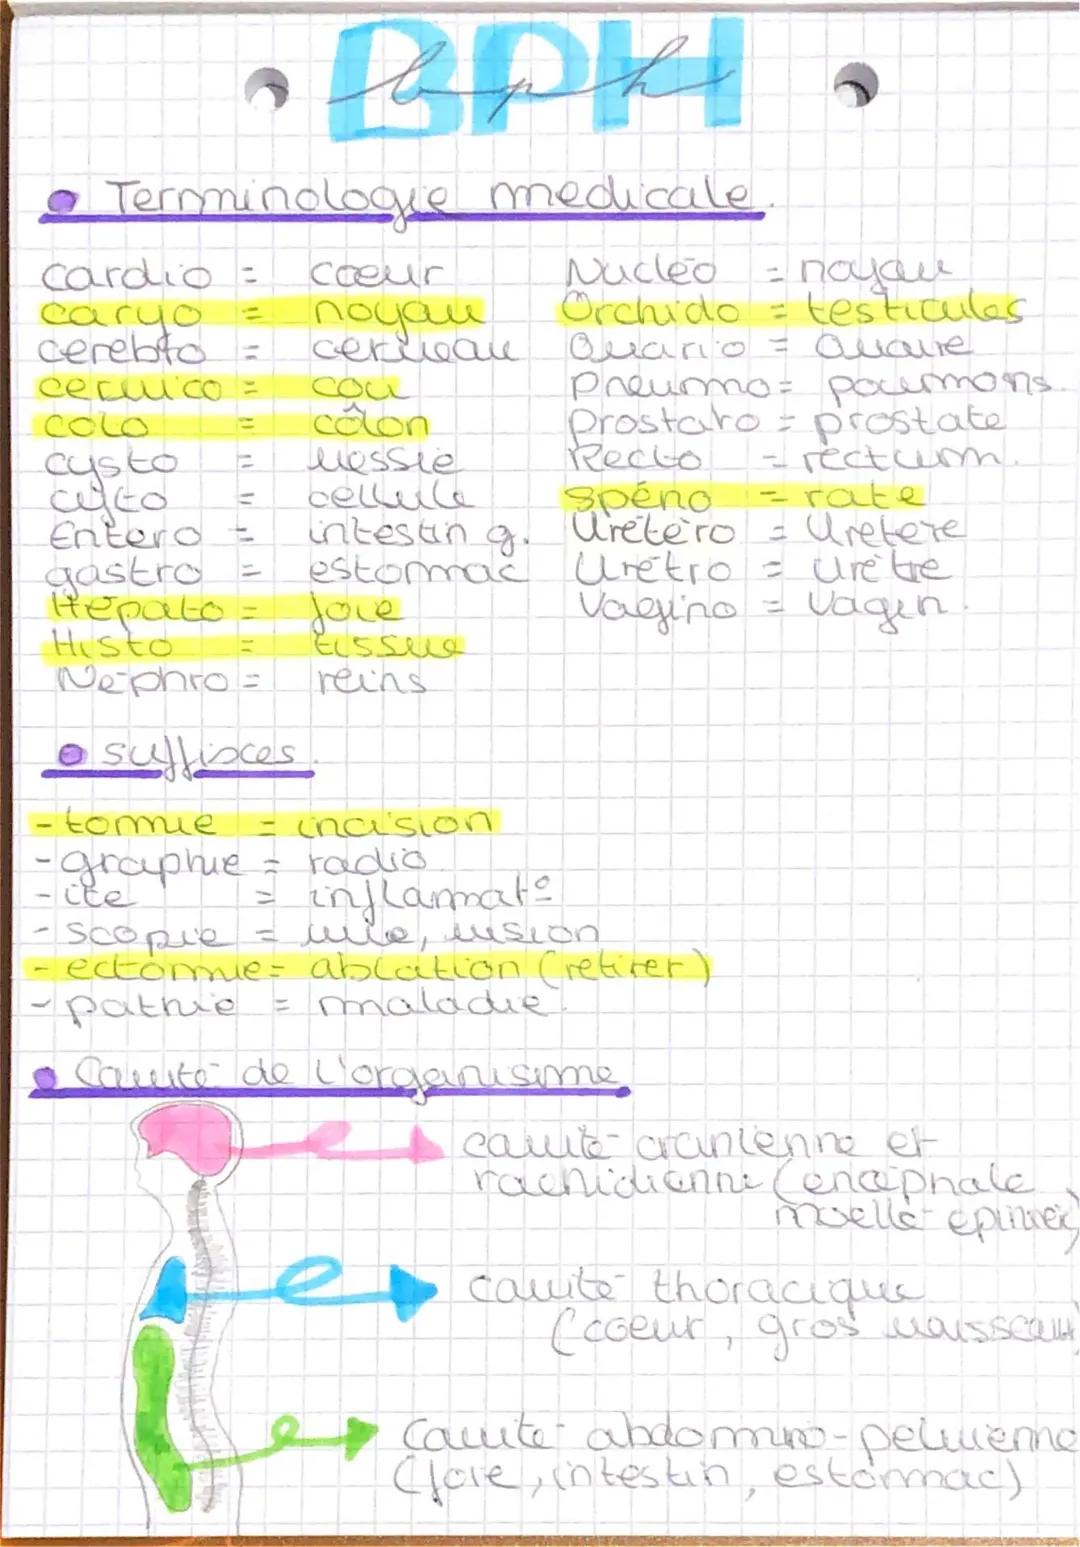 BPH
bph
Terminologie medicale.
cardio = coeur
caryo = noyau
cerebro = cerveau
cervico = cou
colo = côlon
cysto = vessie
cyto = cellule
Entero = intestin g.
gastro = estomac
Hépato = foie
Histo = tissue
Néphro = reins
Nucléo = noyau
Orchido = testicules
Ovario = Ovaire
Pneumo = poumons.
Prostato = prostate
Recto = rectum.
spéno = rate
Urétéro = Uretere
Urétro = urètre
Vagino = Vagin.
suffixes.
-tomie = incision
-graphie = radio
-ite = inflammat°
-scopie = vue, vision
-ectomie = ablation (retirer)
-pathie = maladie.
Cavité de l'organisme
cavité cranienne et
rachidienne (encéphale
moelle épinière)
cavité thoracique
(coeur, gros vaisseaux)
cavité abdomino-pelvienne
(foie, intestin, estomac)